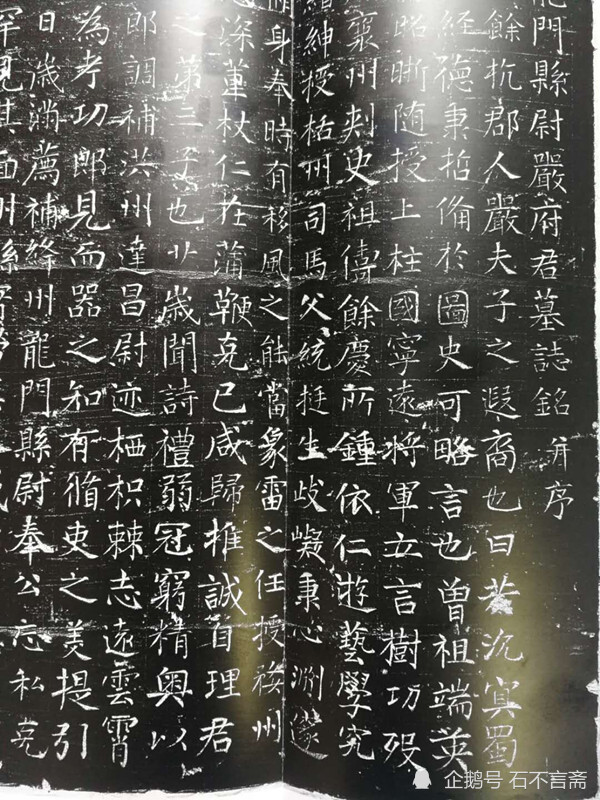 龍門縣尉嚴府君墓誌銘并序
餘杭郡人嚴夫子之遐裔也曰若沉冥蜀
經德秉哲備於圖史可略言也曾祖端英
昭晰随授上柱國寧遠將軍立言樹功歿
襄州刺史祖儔餘慶所鍾依仁遊藝學究
縉紳授栝州司馬父統挺生歧嶷秉心淵邃
脩身奉時有移風之能當象雷之任授婺州
深蕫杖仁在蒲鞭克已咸歸推誠自理君
之第三子也廿歲聞詩禮弱冠窮精奥以
郎調補洪州達昌尉迹栖枳棘志遠雲霄
為考功郎見而器之知有脩吏之美提引
日歲滿薦補絳州龍門縣尉奉公忘私克
罕見其面州縣
企鹅号 石不言斋